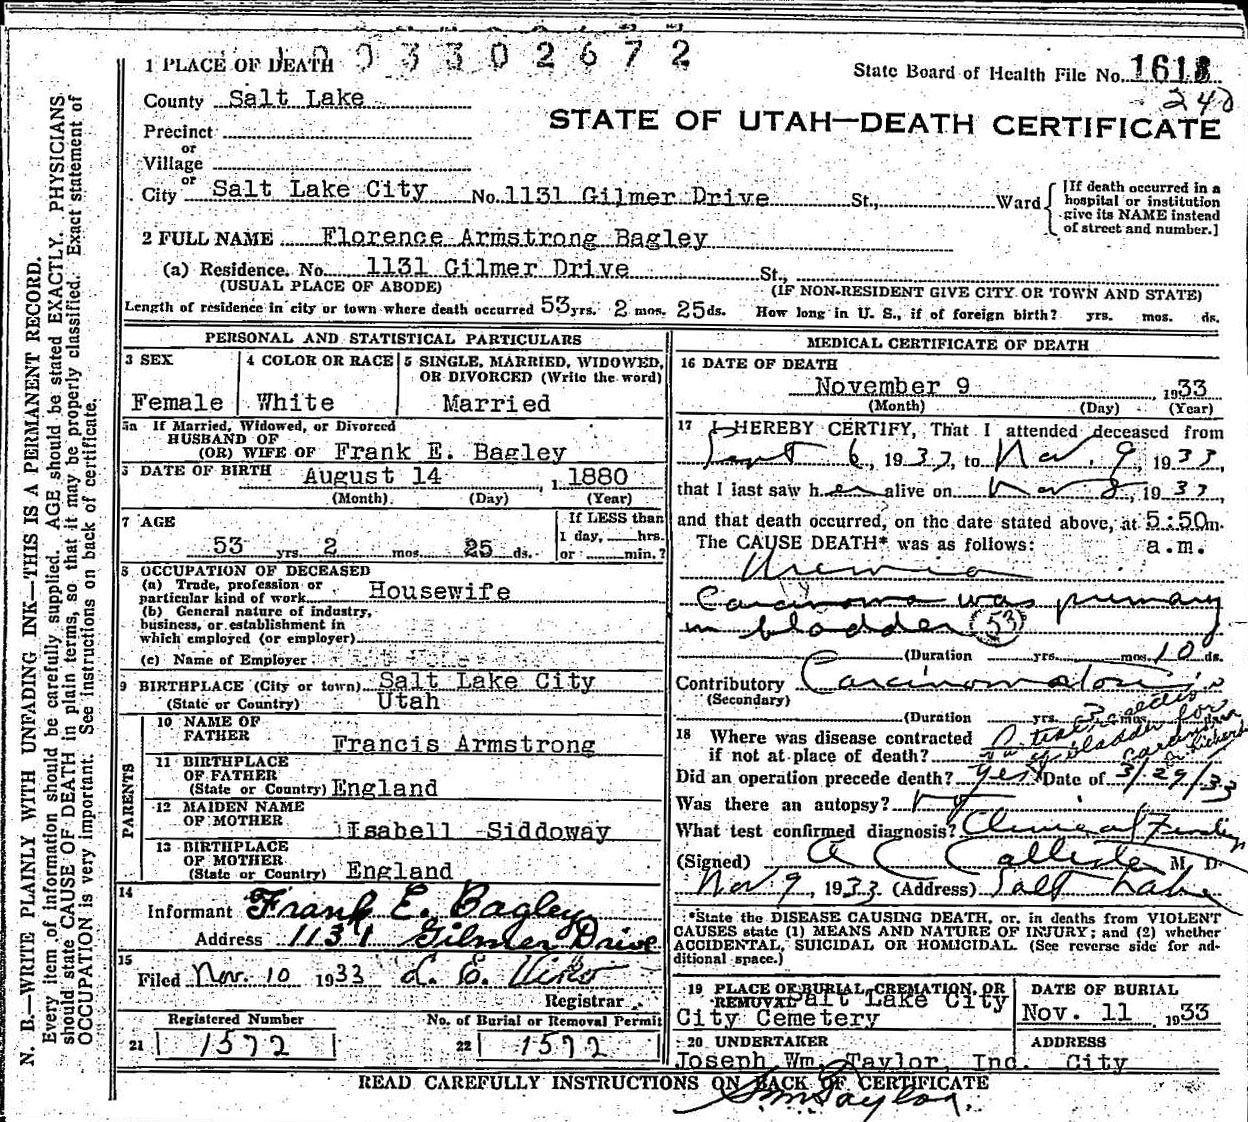 03302672
State Board of Health File No. 1618
240
STATE OF UTAH—DEATH CERTIFICATE
1 PLACE OF DEATH
County Salt Lake
Precinct
or
Village
or
City Salt Lake City No. 1131 Gilmer Drive St., Ward
[If death occurred in a
hospital or institution
give its NAME instead
of street and number.]
2 FULL NAME Florence Armstrong Bagley
(a) Residence. No. 1131 Gilmer Drive St.,
(USUAL PLACE OF ABODE) (IF NON-RESIDENT GIVE CITY OR TOWN AND STATE)
Length of residence in city or town where death occurred 53 yrs. 2 mos. 25 ds. How long in U. S., if of foreign birth? yrs. mos. ds.
PERSONAL AND STATISTICAL PARTICULARS
3 SEX
Female
4 COLOR OR RACE
White
5 SINGLE, MARRIED, WIDOWED,
OR DIVORCED (Write the word)
Married
5a If Married, Widowed, or Divorced
HUSBAND OF
(OR) WIFE OF Frank E. Bagley
DATE OF BIRTH August 14, 1880
(Month) (Day) (Year)
7 AGE
53 yrs. 2 mos. 25 ds.
If LESS than
1 day, hrs.
or min.?
8 OCCUPATION OF DECEASED
(a) Trade, profession or
particular kind of work Housewife
(b) General nature of industry,
business, or establishment in
which employed (or employer)
(c) Name of Employer
9 BIRTHPLACE (City or town) Salt Lake City
(State or Country) Utah
PARENTS
10 NAME OF
FATHER Francis Armstrong
11 BIRTHPLACE
OF FATHER
(State or Country) England
12 MAIDEN NAME
OF MOTHER Isabell Siddoway
13 BIRTHPLACE
OF MOTHER
(State or Country) England
14
Informant Frank E. Bagley
Address 1131 Gilmer Drive
15
Filed Nov. 10 1933 L. E. Viko
Registrar
Registered Number
21 1572
No. of Burial or Removal Permit
22 1572
MEDICAL CERTIFICATE OF DEATH
16 DATE OF DEATH
November 9 1933
(Month) (Day) (Year)
17 I HEREBY CERTIFY, That I attended deceased from
Sept 6, 1933, to Nov. 9, 1933,
that I last saw her alive on Nov 8, 1933,
and that death occurred, on the date stated above, at 5:50 m.
The CAUSE DEATH* was as follows: a.m.
Uremia
Carcinoma was primary
in bladder 53
(Duration yrs. mos. 10 ds.
Contributory Carcinomatosis
(Secondary)
(Duration yrs. 3 mos.
18 Where was disease contracted
if not at place of death?
of bladder for
carcinoma
Did an operation precede death? Yes Date of 3/29/33
Was there an autopsy?
What test confirmed diagnosis? Clinical Findings
(Signed) A C Callister M. D.
Nov 9, 1933 (Address) Salt Lake
*State the DISEASE CAUSING DEATH, or, in deaths from VIOLENT
CAUSES state (1) MEANS AND NATURE OF INJURY; and (2) whether
ACCIDENTAL, SUICIDAL OR HOMICIDAL. (See reverse side for ad-
ditional space.)
19 PLACE OF BURIAL, CREMATION, OR
REMOVAL Salt Lake City
City Cemetery
DATE OF BURIAL
Nov. 11 1933
20 UNDERTAKER
Joseph Wm. Taylor, Inc.
ADDRESS
City
READ CAREFULLY INSTRUCTIONS ON BACK OF CERTIFICATE
Taylor
N. B.—WRITE PLAINLY WITH UNFADING INK—THIS IS A PERMANENT RECORD.
Every item of information should be carefully supplied. AGE should be stated EXACTLY. PHYSICIANS
should state CAUSE OF DEATH in plain terms, so that it may be properly classified. Exact statement of
OCCUPATION is very important. See instructions on back of certificate.